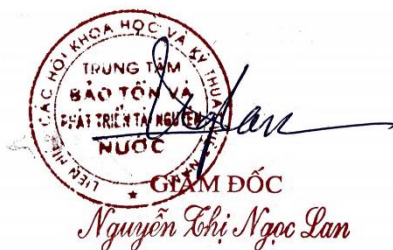 LIÊN HIỆP CÁC HỘI KHOA HỌC VÀ KỸ THUẬT VIỆT NAM
TRUNG TÂM
BẢO TỒN VÀ
PHÁT TRIỂN TÀI NGUYÊN
NƯỚC
GIÁM ĐỐC
Nguyễn Thị Ngọc Lan